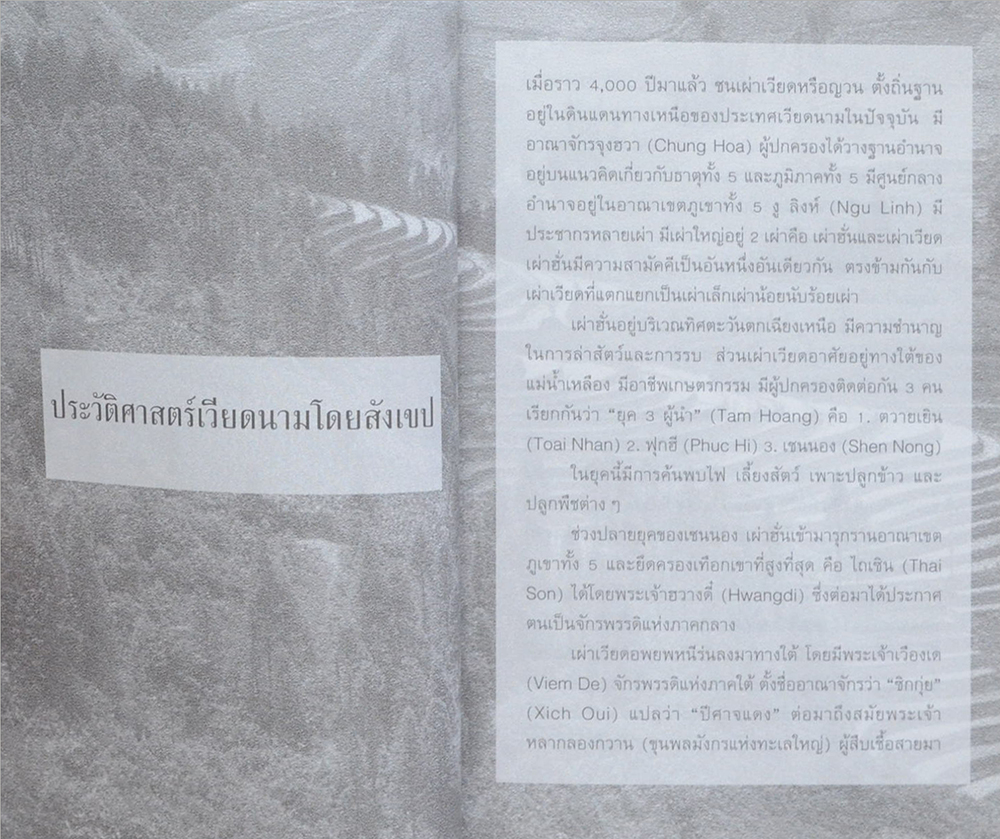 ประวัติศาสตร์เวียดนามโดยสังเขป
เมื่อราว 4,000 ปีมาแล้ว ชนเผ่าเวียดหรือญวน ตั้งถิ่นฐาน
อยู่ในดินแดนทางเหนือของประเทศเวียดนามในปัจจุบัน มี
อาณาจักรจุงฮวา (Chung Hoa) ผู้ปกครองได้วางฐานอำนาจ
อยู่บนแนวคิดเกี่ยวกับธาตุทั้ง 5 และภูมิภาคทั้ง 5 มีศูนย์กลาง
อำนาจอยู่ในอาณาเขตภูเขาทั้ง 5 งู ลิงห์ (Ngu Linh) มี
ประชากรหลายเผ่า มีเผ่าใหญ่อยู่ 2 เผ่าคือ เผ่าฮั่นและเผ่าเวียด
เผ่าฮั่นมีความสามัคคีเป็นอันหนึ่งอันเดียวกัน ตรงข้ามกันกับ
เผ่าเวียดที่แตกแยกเป็นเผ่าเล็กเผ่าน้อยนับร้อยเผ่า
เผ่าฮั่นอยู่บริเวณทิศตะวันตกเฉียงเหนือ มีความชำนาญ
ในการล่าสัตว์และการรบ ส่วนเผ่าเวียดอาศัยอยู่ทางใต้ของ
แม่น้ำเหลือง มีอาชีพเกษตรกรรม มีผู้ปกครองติดต่อกัน 3 คน
เรียกกันว่า “ยุค 3 ผู้นำ” (Tam Hoang) คือ 1. ตวายเยิน
(Toai Nhan) 2. ฟุกฮี (Phuc Hi) 3. เชนนอง (Shen Nong)
ในยุคนี้มีการค้นพบไฟ เลี้ยงสัตว์ เพาะปลูกข้าว และ
ปลูกพืชต่าง ๆ
ช่วงปลายยุคของเชนนอง เผ่าฮั่นเข้ามารุกรานอาณาเขต
ภูเขาทั้ง 5 และยึดครองเทือกเขาที่สูงที่สุด คือ ไถเซิน (Thai
Son) ได้โดยพระเจ้าฮวางดี่ (Hwangdi) ซึ่งต่อมาได้ประกาศ
ตนเป็นจักรพรรดิแห่งภาคกลาง
เผ่าเวียดอพยพหนีร่นลงมาทางใต้ โดยมีพระเจ้าเวืองเด
(Viem De) จักรพรรดิแห่งภาคใต้ ตั้งชื่ออาณาจักรว่า “ซิกกุ่ย”
(Xich Oui) แปลว่า “ปีศาจแดง” ต่อมาถึงสมัยพระเจ้า
หลากลองกวาน (ขุนพลมังกรแห่งทะเลใหญ่) ผู้สืบเชื้อสายมา